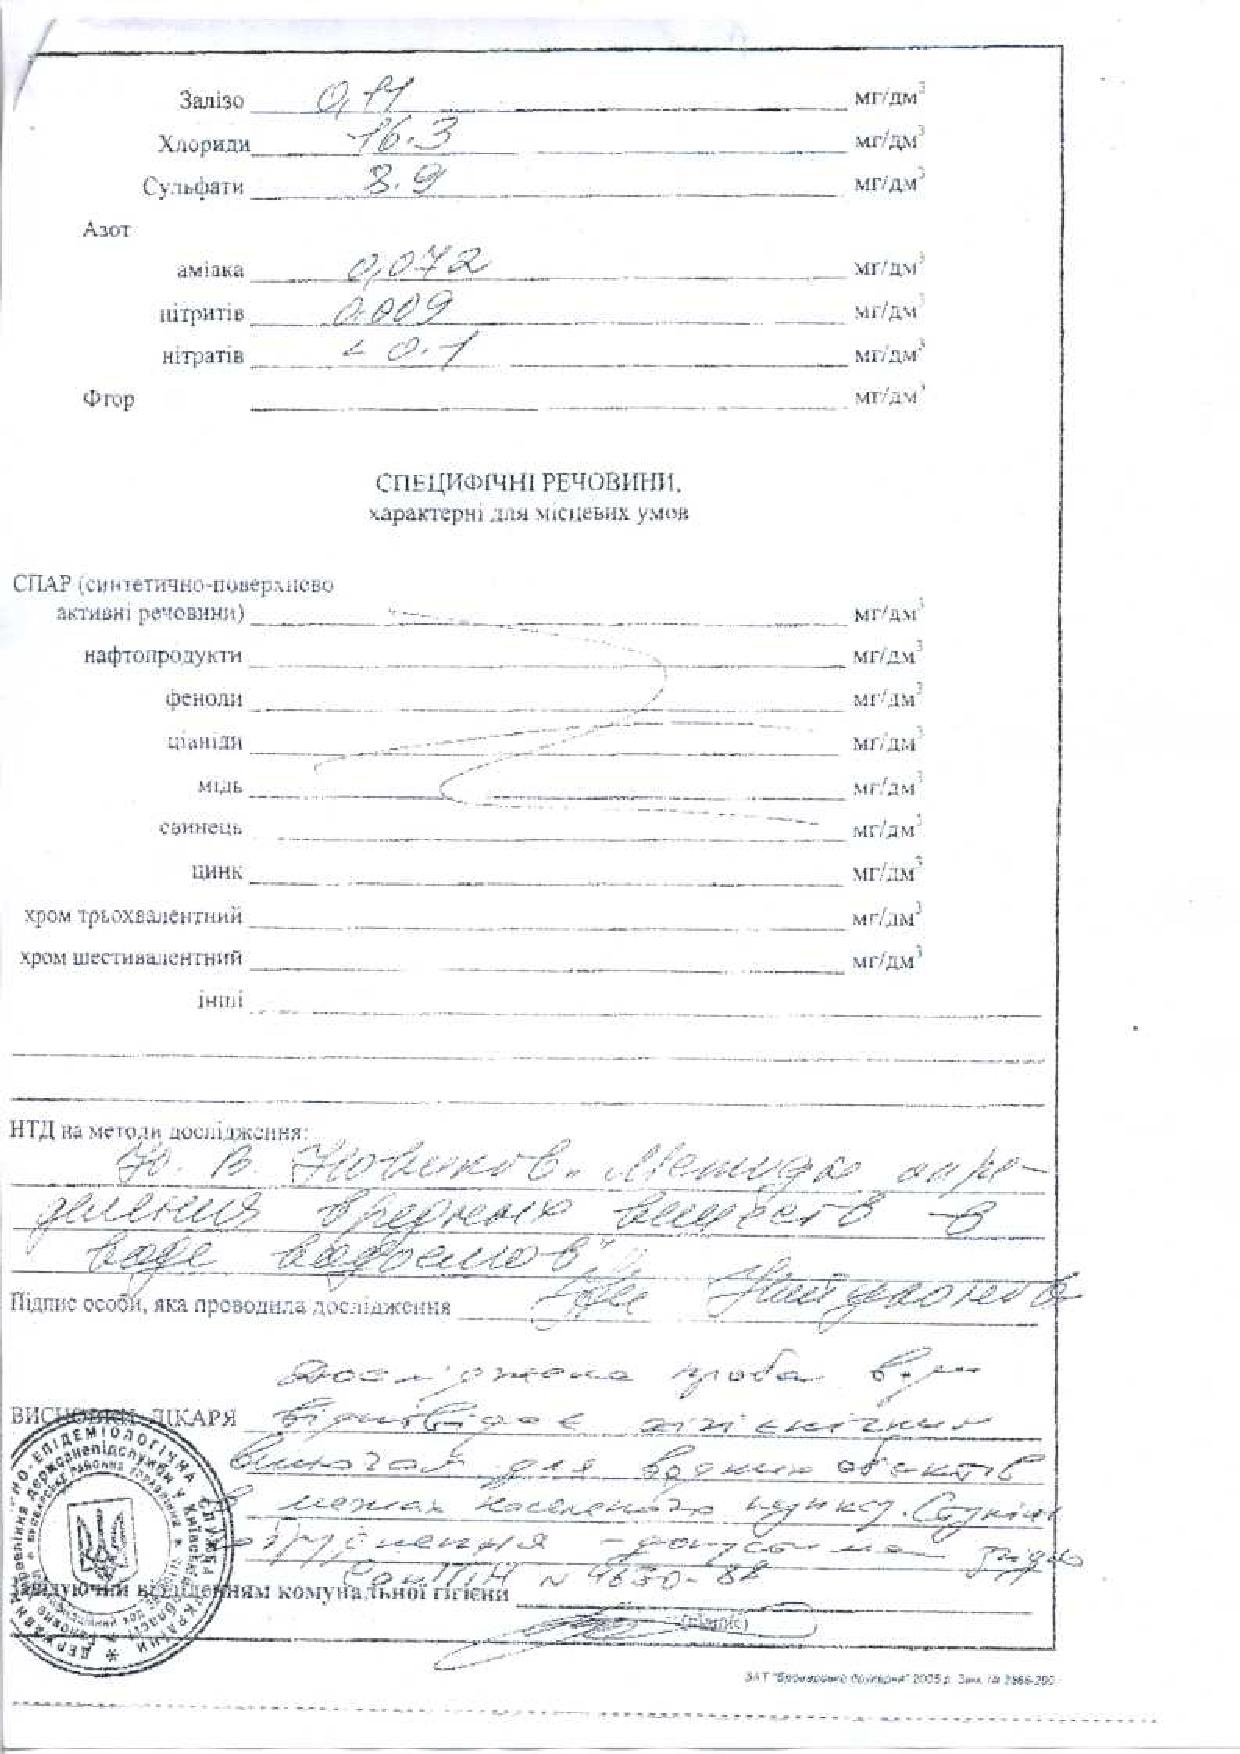 Залізо 0,11 мг/дм³
Хлориди 16.3 мг/дм³
Сульфати 3.9 мг/дм³
Азот
аміака 0,072 мг/дм³
нітритів 0.009 мг/дм³
нітратів < 0.1 мг/дм³
Фтор мг/дм³
СПЕЦИФІЧНІ РЕЧОВИНИ,
характерні для місцевих умов
СПАР (синтетично-поверхнево
активні речовини) мг/дм³
нафтопродукти мг/дм³
феноли мг/дм³
ціаніди мг/дм³
мідь мг/дм³
свинець мг/дм³
цинк мг/дм³
хром трьохвалентний мг/дм³
хром шестивалентний мг/дм³
інші
НТД на методи дослідження:
Ю. В. Новиков. Методы опре-
деления вредных веществ в
воде водоемов"
Підпис особи, яка проводила дослідження
Досліджена проба води
ВИСНОВКИ ЛІКАРЯ відповідає гігієнічним
вимогам для водних обєктів
в межах населеного пункту.
згідно
СанПіН N 4630-88
Завідуючий відділенням комунальної гігієни
(підпис)
ЗАТ "Броварська друкарня" 2005 р. Зам. №